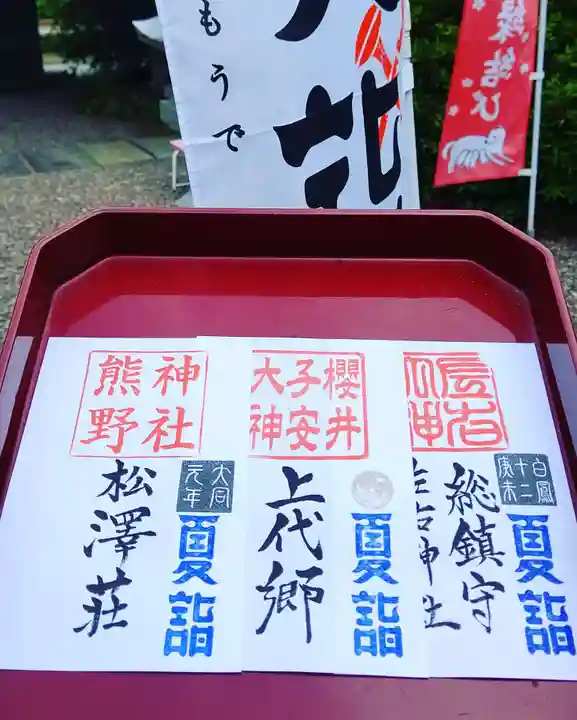 もうで
縁結び
白鳳
十二
庚未
夏詣
総鎮守
櫻井
子安
大神
上代郷
夏詣
神社
熊野
大同
元年
夏詣
松澤荘